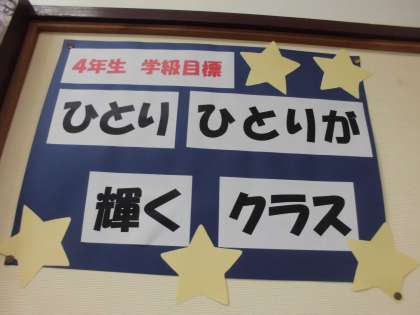 4年生 学級目標
ひとり ひとりが
輝く クラス